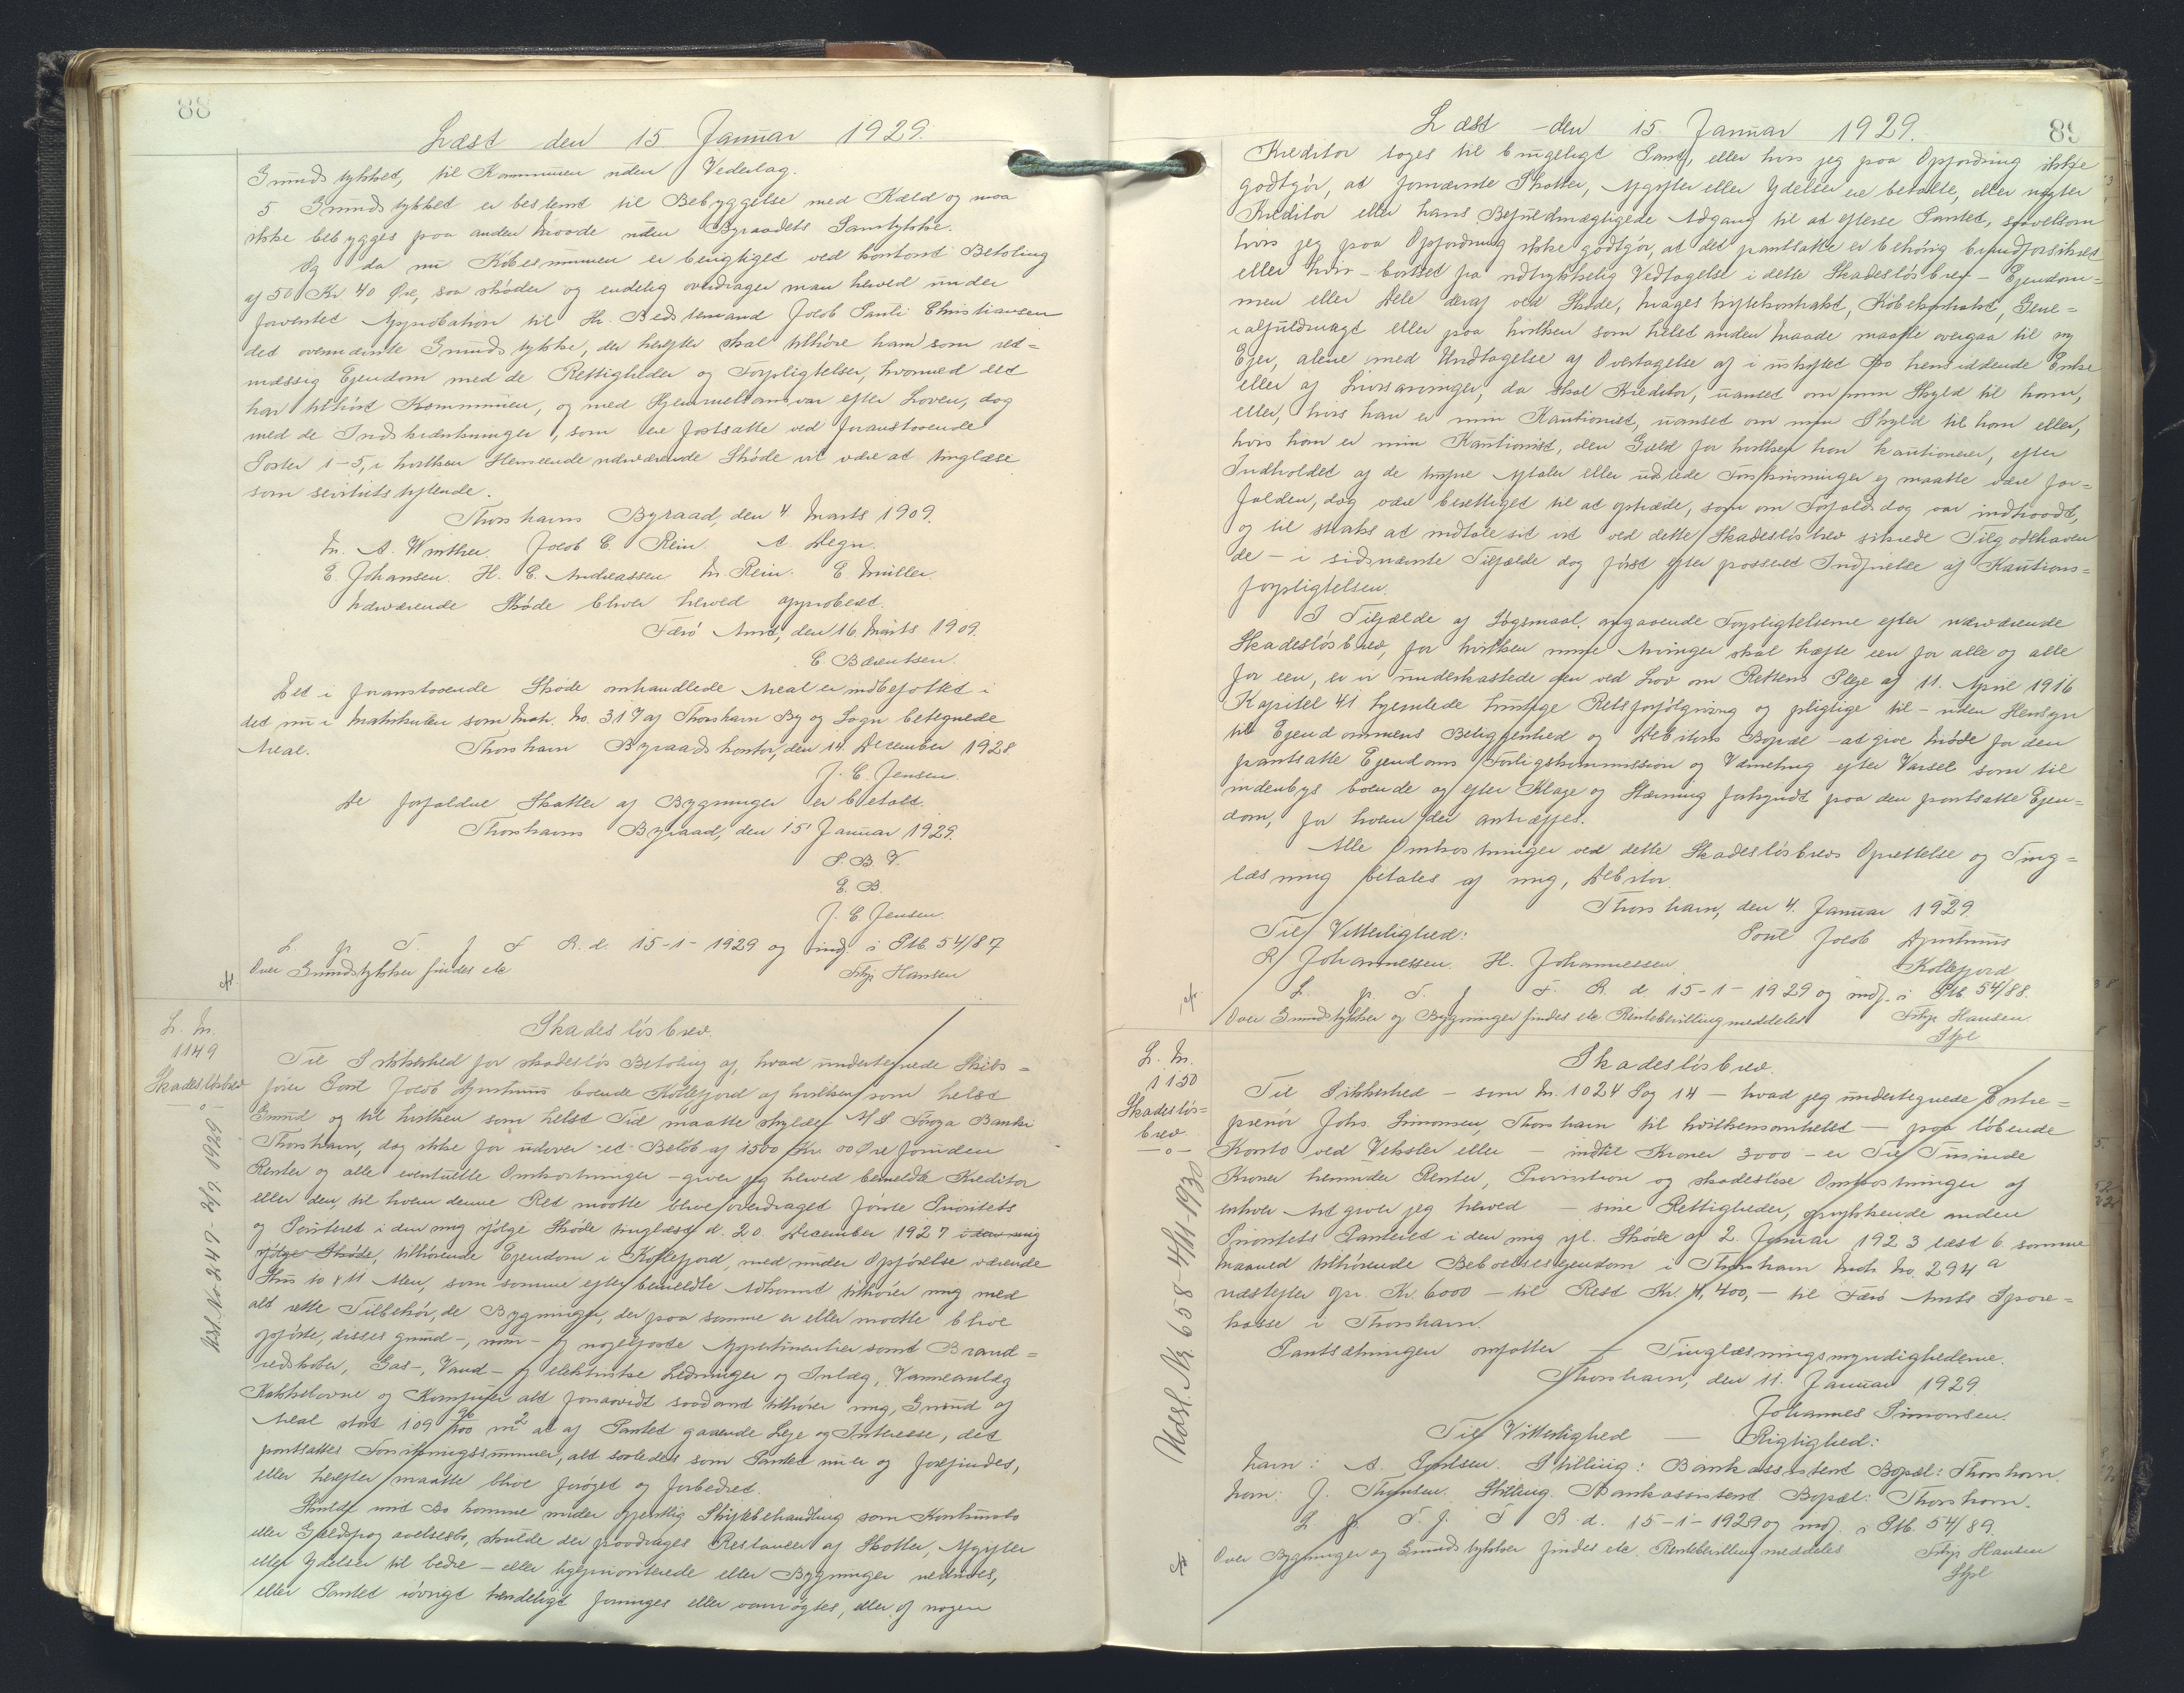 88
Læst den 15. Januar 1929.
Grundstykket, til Kommunen uden Vederlag.
5 Grundstykket er bestemt til Bebyggelse med Kæld og maa
ikke bebygges paa anden Maade uden Byraadets Samtykke.
Og da nu Købesummen er berigtiget ved kontant Betaling
af 50 Kr 40 Øre, saa skøder og endelig overdrager man herved under
forventet Approbation til Hr. Bedstemand Jacob Pauli Christiansen
det ovennævnte Grundstykke, der herefter skal tilhøre ham som ret=
mæssig Ejendom med de Rettigheder og Forpligtelser, hvormed det
har tilhørt Kommunen, og med Hjemmelsansvar efter Loven, dog
med de Indskrænkninger, som ere fastsatte ved foranstaaende
Poster 1-5, i hvilken Henseende nærværende Skøde vil være at tinglæse
som servitutstiftende.
Thorshavns Byraad, den 4 Marts 1909.
M. A. Winther. Jacob C. Rein. A. Degn.
E. Johansen. H. C. Andreassen M. Rein. E. Müller.
Nærværende Skøde bliver herved approberet.
Færø Amt, den 16. Marts 1909.
C. Bærentsen.
Det i foranstaaende Skøde omhandlede Areal er indbefattet i
det nu i Matrikulen som Matr. No. 317 af Thorshavn By og Sogn betegnede
Areal. Thorshavn Byraadskontor, den 14. December 1928.
J. C. Jensen.
De forfaldne Skatter af Bygninger er betalt.
Thorshavns Byraad, den 15' Januar 1929.
P. B. V.
E. B.
J. C. Jensen.
L. p. T. f F R. d. 15-1-1929 og indf. i Ptb. 54/87
Over Grundstykker findes etc Filip Hansen
L. N.
1149
Skadesløsbrev
o
Skadesløsbrev.
Til Sikkerhed for skadesløs Betaling af, hvad undertegnede Skibs=
fører Poul Jacob Djurhuus boende Kollefjord af hvilken som helst
Grund og til hvilken som helst Tid maatte skylde A/S Føroya Banki
Thorshavn, dog ikke for udover et Beløb af 1500 Kr. 00 Øre foruden
Renter og alle eventuelle Omkostninger – giver jeg herved bemeldte Kreditor
eller den, til hvem denne Ret maatte blive overdraget første Prioritets
og Panteret i den mig ifølge Skøde tinglæst d. 20. December 1927 i den mig
ifølge Skøde, tilhørende Ejendom i Kollefjord, med under Opførelse værende
Hus 10 x 11 Alen, som samme efter bemeldte Adkomst tilhører mig med
alt rette Tilbehør, de Bygninger, der paa samme er eller maatte blive
opførte, disses grund-, mur- og nagelfaste Appertinentier samt Brand=
redskaber, Gas-, Vand- og elektriske Ledninger og Anlæg, Varmeanlæg
Kakkelovne og Komfurer alt forsaavidt saadant tilhører mig, Grund af
Areal stort 109 96/100 m² at af Pantet gaaende Leje og Interesse, det
pantsattes Forsikringssummer, alt saaledes som Pantet nu er og forefindes,
eller herefter maatte blive forøget og forbedret.
Skulde mit Bo komme under offentlig Skiftebehandling som Konkursbo
eller Gældsfragaaelsesbo, skulde der paadrages Restancer af Skatter, Afgifter
eller Ydelser til bedre – eller ligeprioriterede eller Bygninger nedrives,
eller Pantet iøvrigt kendeligt forringes eller vanrøgtes, eller af nogen
Udsl. No 247 - 2/7. 1929
89
Læst den 15. Januar 1929.
Kreditor tages til brugeligt Pant, eller hvis jeg paa Opfordring ikke
godtgør, at fornævnte Skatter, Afgifter eller Ydelser ere betalte, eller nægter
Kreditor eller hans Befuldmægtigede Adgang til at efterse Pantet, saavelsom
hvis jeg paa Opfordring ikke godtgør, at det pantsatte er behørig brandforsikret
eller hvis – bortset fra udtrykkelig Vedtagelse i dette Skadesløsbrev – Ejendom=
men eller Dele deraf ved Skøde, Mageskiftekontrakt, Købekontrakt, Gene=
ralfuldmagt eller paa hvilken som helst anden Maade maatte overgaa til ny
Ejer, alene med Undtagelse af Overtagelse af i uskiftet Bo hensiddende Enke
eller af Livsarvinger, da skal Kreditor, uanset om min Skyld til ham,
eller, hvis han er min Kautionist, uanset om min Skyld til ham eller,
hvis han er min Kautionist, den Gæld for hvilken han kautionerer, efter
Indholdet af de trufne Aftaler eller udstedte Forskrivninger ej maatte være for=
falden, dog være berettiget til at optræde, som om Forfaldsdag var indtraadt,
og til straks at indtale sit ved dette Skadesløsbrev sikrede Tilgodehaven
de – i sidsnævnte Tilfælde dog først efter passeret Indfrielse af Kautions=
forpligtelsen.
I Tilfælde af Søgsmaal angaaende Forpligtelserne efter nærværende
Skadesløsbrev, for hvilken mine Arvinger skal hæfte een for alle og alle
for een, er vi underkastede den ved Lov om Rettens Pleje af 11. April 1916
Kapitel 41 hjemlede hurtige Retsforfølgning og pligtige til – uden Hensyn
til Ejendommens Beliggenhed og Debitors Bopæl – at give Møde for den
pantsatte Ejendoms Forligskommission og Værneting efter Varsel som til
indenbys boende og efter Klage og Stævning forkyndt paa den pantsatte Ejen=
dom, for hvem der antræffes.
Alle Omkostninger ved dette Skadesløsbrevs Oprettelse og Ting=
læsning betales af mig, Debitor.
Thorshavn, den 4. Januar 1929.
Til Vitterlighed: Poul Jacob Djurhuus
R. Johannessen. H. Johannessen. Kollefjord
L. p. T. f F. R. d. 15-1-1929 og indf. i Ptb. 54/88.
Over Grundstykker og Bygninger findes etc Rentebevilling meddeles Filip Hansen
L. N.
1150
Skadesløs=
brev.
—o—
Skadesløsbrev.
Til Sikkerhed – som N. 1024 Pag 14 – hvad jeg undertegnede Entre=
prenør Johs. Simonsen, Thorshavn til hvilkensomhelst – paa løbende
Konto ved Veksler eller – indtil Kroner 3000 – er Tre Tusinde
Kroner herunder Renter, Provision og skadesløse Omkostninger af
enhver Art giver jeg herved – sine Rettigheder, oprykkende anden
Prioritets Panteret i den mig ifl. Skøde af 2. Januar 1923 læst 6. samme
Maaned tilhørende Beboelsesejendom i Thorshavn Matr. No. 294 a
næstefter opr. Kr. 6000 – til Rest Kr. 4,400,- til Færø Amts Spare=
kasse i Thorshavn.
Pantsætningen omfatter – Tinglæsningsmyndighederne.
Thorshavn, den 11. Januar 1929.
Johannes Simonsen.
Til Vitterlighed — Rigtighed:
Navn: A. Stilling: Bankassistent Bopæl: Thorshavn.
Navn: J. Stilling. Bankassistent. Bopæl: Thorshavn.
L. p. T. f. F R. d. 15-1-1929 og indf. i Ptb. 54/89.
Over Bygninger og Grundstykker findes etc. Rentebevilling meddeles Filip Hansen
Udsl. No 658 - 4/11-1930